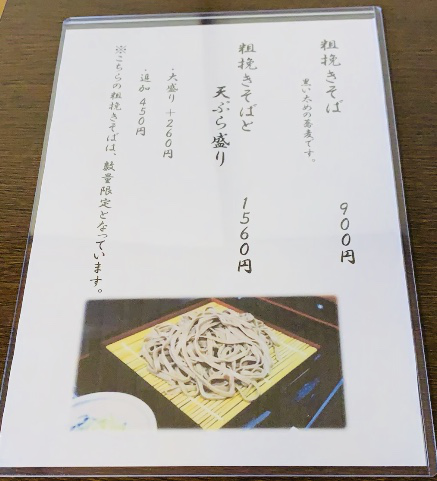 粗挽きそば　900円
黒い太めの蕎麦です。
粗挽きそばと
天ぷら盛り　1560円
・大盛り＋260円
・追加 450円
※こちらの粗挽きそばは、数量限定となっています。